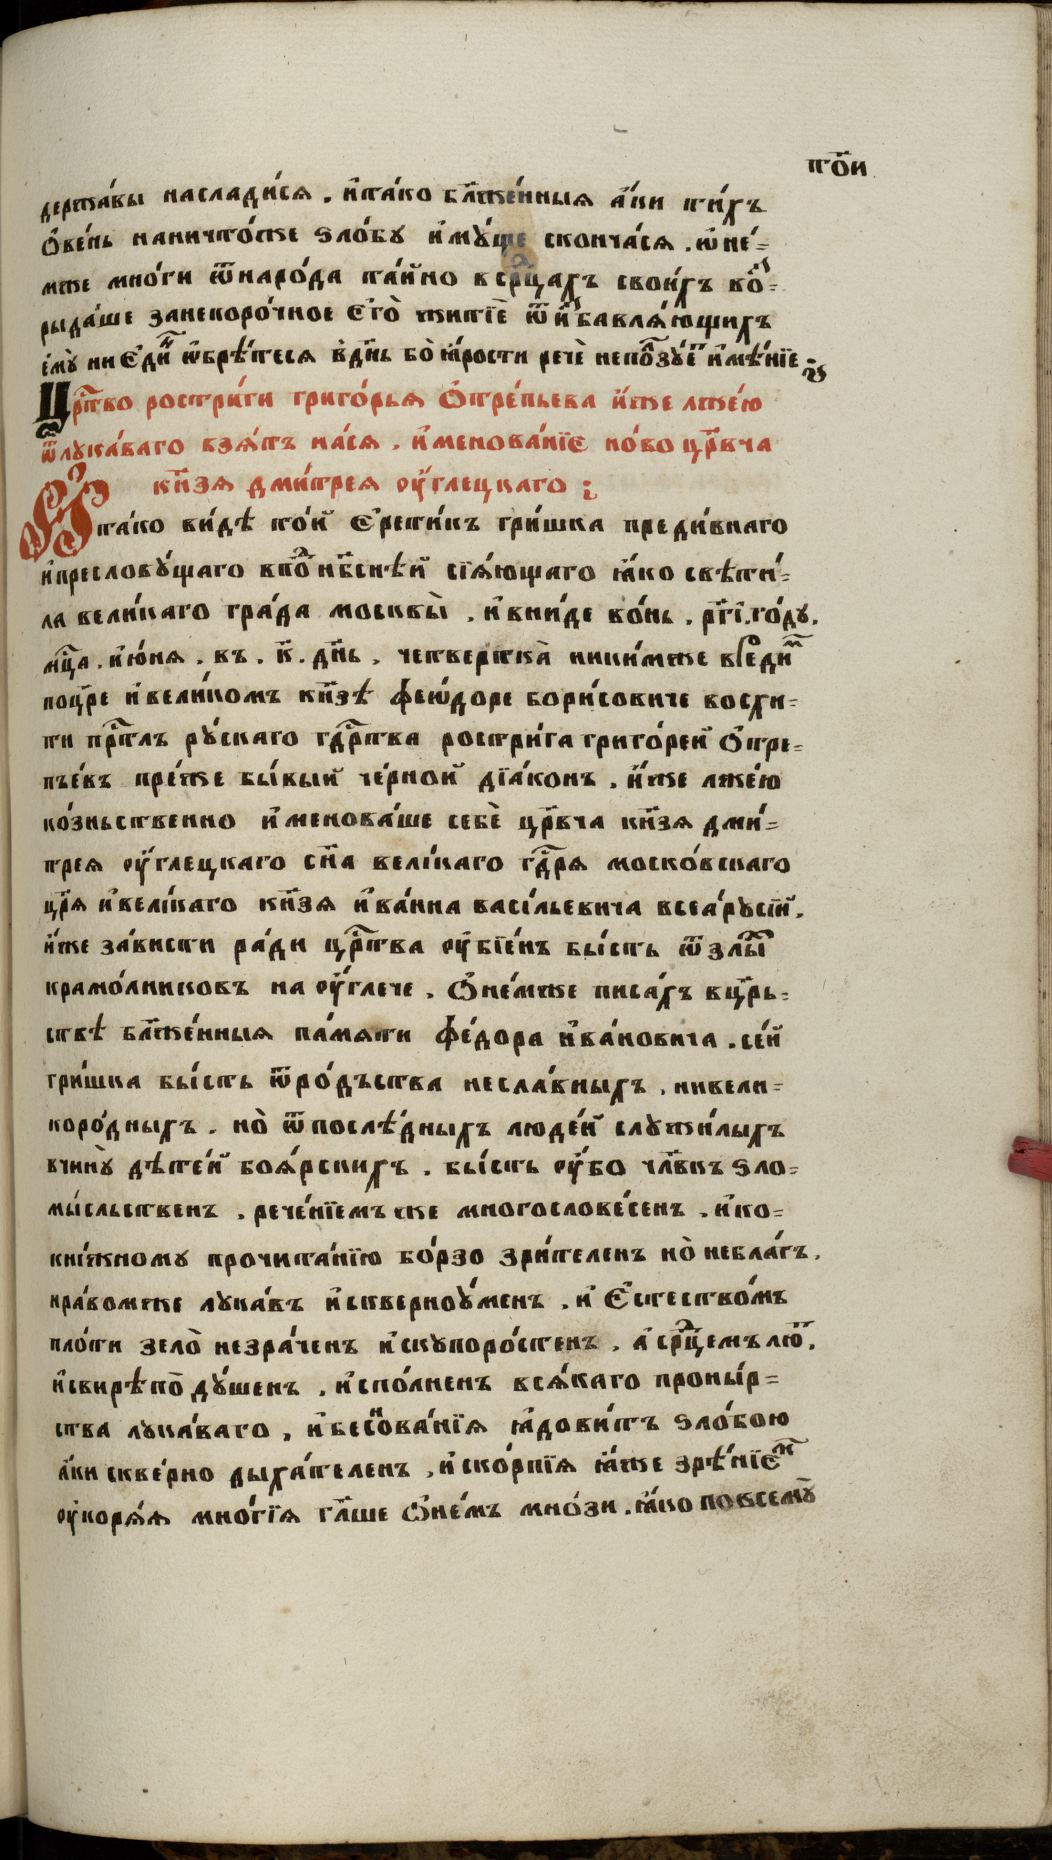 тѻ҃и
держа́вы наслади́сѧ . и҆та́ко бл҃же́нныѧ а҆́ки ти́хъ
ѻ҆ве́нь наничто́же ѕло́бу и҆му́ще сконча́сѧ . ѡ҆не́=
мже мно́ги ѿнаро́да та́йно в ср҃цахъ свои́хъ во̑з=
рыда́ше занепоро́чное є҆го̀ житїѐ ѿ и҆збавлѧ́ющихъ
є҆мꙋ̀ ни є҆ди́н ѡ҆брѣ́тесѧ в дн҃ь бо̀ ꙗ҆́рости речѐ непо́лзуетъ и҆мѣ́нїе ;
Цр҃тво ростри́ги григо́рьѧ ѻ҆тре́пьева и҆́же лже́ю
ѿлука́ваго взѧ́тъ на́сѧ . и҆менова́нїє но́во цр҃вча
кн҃зѧ дми́трея оу҆́глецкаго ;
И҆та́ко ви́дѣ то́й є҆рети́къ гри́шка преди́внаго
и҆пресловꙋ́щаго впо̑д нб҃снѣ́й сїѧ́ющаго ꙗ҆́ко свѣти́=
ла вели́каго гра́да москвы̀ . и҆вни́де во́нь . рг҃і . го́дꙋ .
мц҃а . и҆ю́нѧ . въ . к҃ . дн҃ь . четверткà ники́мже вреди́м
поцр҃е и҆вели́комъ кн҃зѣ феѡ́доре бори́совиче восхи=
ти пр҃тлъ рꙋ́скаго гдр҃тва ростри́га григо́рей ѻ҆тре=
пъе́въ пре́же бы́вый че́рной дїа́конъ . и҆́же лже́ю
ко́зньственно и҆менова́ше себѐ цр҃вча кн҃зѧ дми́=
трея оу҆́глецкаго сн҃а вели́каго гдр҃ѧ моско́вскаго
цр҃ѧ и҆вели́каго кн҃зѧ и҆ва́нна васи́льевича всеа́рꙋсїй .
и҆́же за́висти ра́ди цр҃тва оу҆бїе́нъ бы́сть ѿ злы́х
крамо́лниковъ на оу҆́глече . ѻ҆не́мже писа́хъ вцр҃ь=
ствѣ бл҃же́нныѧ па́мѧти фе́дора и҆ва́новича . се́й
гри́шка бы́сть ѿро́дъства несла́вныхъ . нивели=
коро́дныхъ . но̀ ѿпослѣ́дныхъ люде́й слꙋжи́лыхъ
вчинꙋ̀ дѣте́й боѧ́рскихъ . бы́сть оу҆́бо чл҃вкъ ѕло=
мы́сльственъ . рече́нїемъ же многослове́сенъ . и҆ко=
кни́жному прочита́нїю бо́рзо зри́теленъ но̀ небла́гъ .
нра́вомже лука́въ и҆скверноꙋ́менъ . и҆ є҆стество́мъ
пло́ти зело̀ незра́ченъ и҆скупоро́стенъ . а҆ ср҃дцемъ лю́т .
и҆свирѣпо̀ дꙋ́шенъ . и҆спо́лненъ всѧ́каго проны́р=
ства лука́ваго . и҆бесн̑ова́нїѧ ꙗ҆дови́тъ ѕло́бою
а҆́ки скве́рно дыха́теленъ . и҆ско́рпїѧ ꙗ҆́же зрѣ́нїєм
оу҆корѧ́ѧ мно́гїѧ гл҃ше ѻ҆не́мъ мно́зи . ꙗ҆́ко повсемꙋ̀